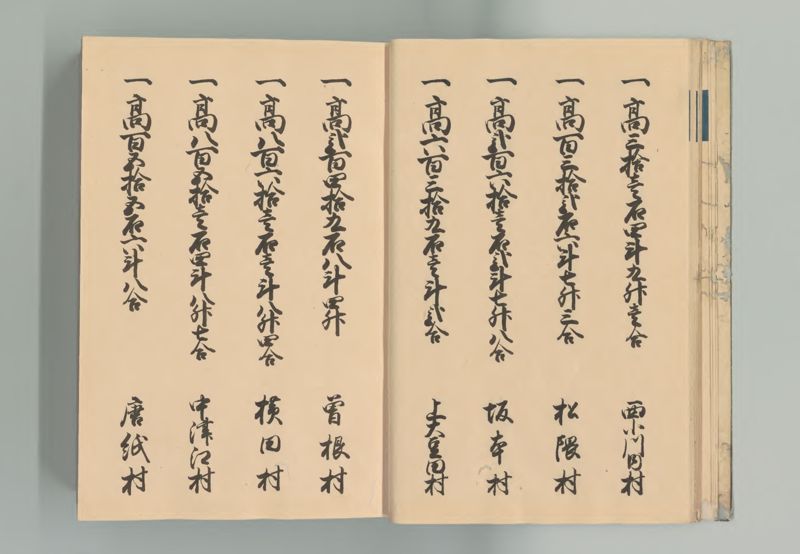 一高三拾壱石四斗九升壱合 西小川内村
一高百三拾弐石六斗七升三合 松隈村
一高弐百六拾壱石弐斗七升八合 坂本村
一高六百三拾九石壱斗弐合 上大豆田村
一高弐百四拾九石八斗四升 曽根村
一高八百六拾壱石壱斗八升四合 横田村
一高八百五拾壱石四斗八升七合 中津江村
一高百五拾五石六斗八合 唐紙村